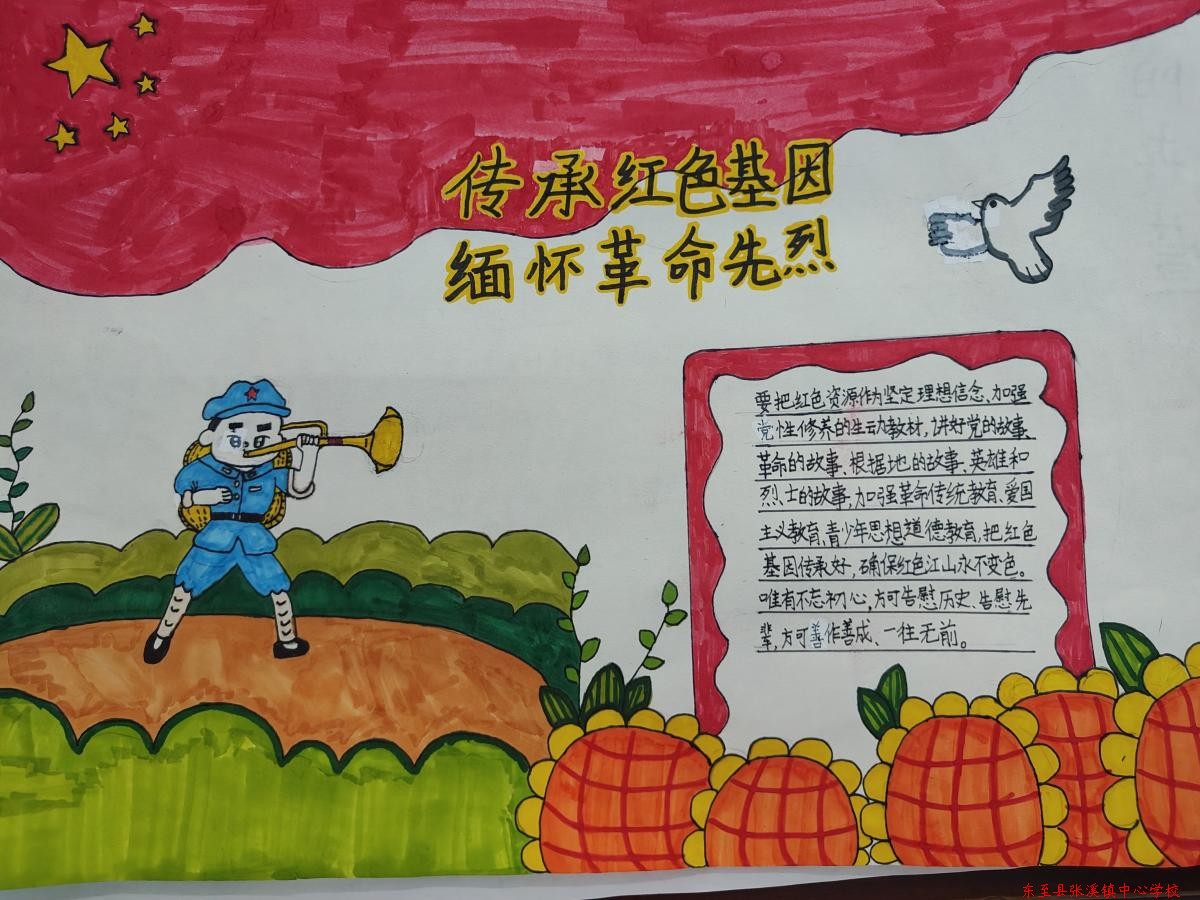 传承红色基因
缅怀革命先烈
要把红色资源作为坚定理想信念、加强
党性修养的生动教材,讲好党的故事、
革命的故事、根据地的故事、英雄和
烈士的故事,加强革命传统教育、爱国
主义教育、青少年思想道德教育,把红色
基因传承好,确保红色江山永不变色。
唯有不忘初心,方可告慰历史、告慰先
辈,方可善作善成、一往无前。
东至县张溪镇中心学校